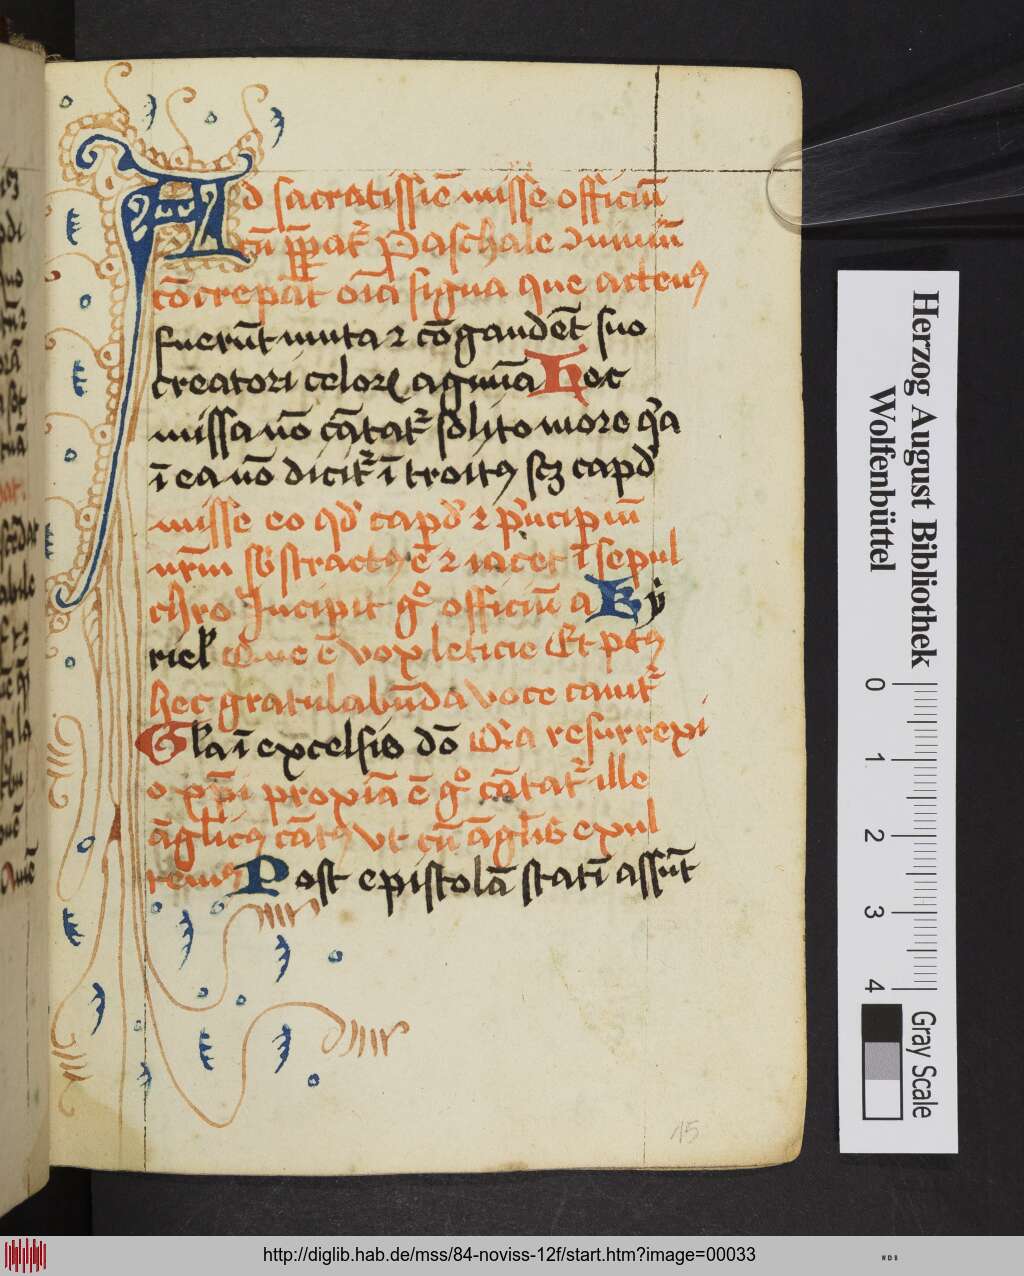 Ad sacratissiē misse officiū
cū pp̄at᷒ Paschale dnmm̄
cōcrepāt oīa signa que acten᷒
fuerūt muta ⁊ cōgaudēt suo
creatori celoꝝ agmīa Hec
missa nō cātat᷒ solito more qͥa
ī ea nō dicit᷒ ītroit᷒ scꝫ capd
misse eo qd̓ capd̓ ⁊ pͥncipiū
nr̄m sbstract᷒ ē ⁊ iacet ī sepul
chro Incipit gͦ officiū a ky
riel Que ē vox leticie Et
hec gratulabūda voce canit᷒
Gl̓a ī excelsis dō Qͥa resurrexi
o xp̄i proxīa ē gͦ cātat᷒ ille
āglic᷒ cāt᷒ vt cū āglis exul
tem᷒ Post epistolā statī assūt
15
Herzog August Bibliothek
Wolfenbüttel
0 1 2 3 4
Gray Scale
http://diglib.hab.de/mss/84-noviss-12f/start.htm?image=00033